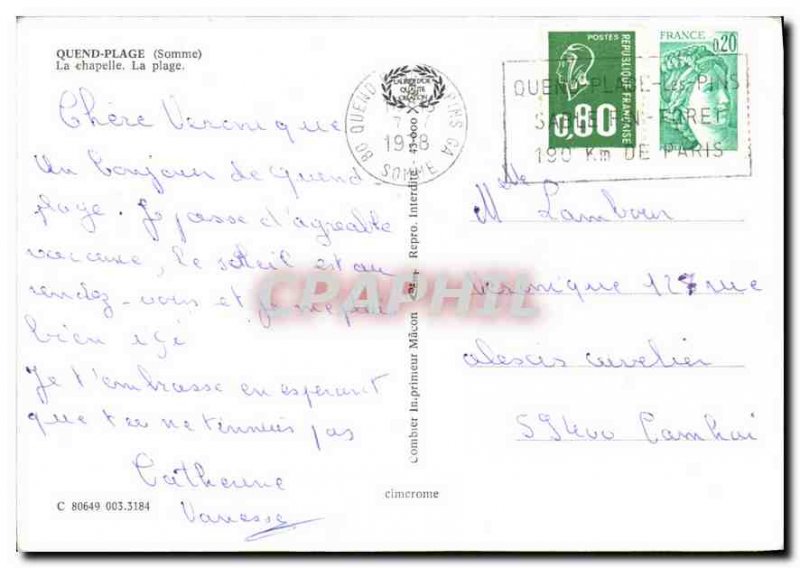 QUEND-PLAGE (Somme)
La chapelle. La plage.
Chère Veronique
Un bonjour de Quend
plage. Je passe d'agreable
vacance, le soleil est au
rendez-vous et je me plai
bien içi
Je t'embrasse en esperant
que tu ne t'ennuies pas
Catherine
Vanesse
C 80649 003.3184
80 QUEND PINS CA
1978
SOMME
Combier Imprimeur Mâcon Repro. Interdite - 43-000
cimcrome
POSTES
REPUBLIQUE FRANÇAISE
0,80
FRANCE
0,20
QUEND-PLAGE-LES-PINS
SABLE-PIN-FORET
190 Km DE PARIS
Mlle Lambour
Veronique 127 rue
alexis cuvelier
59400 Cambrai
CPAPHIL